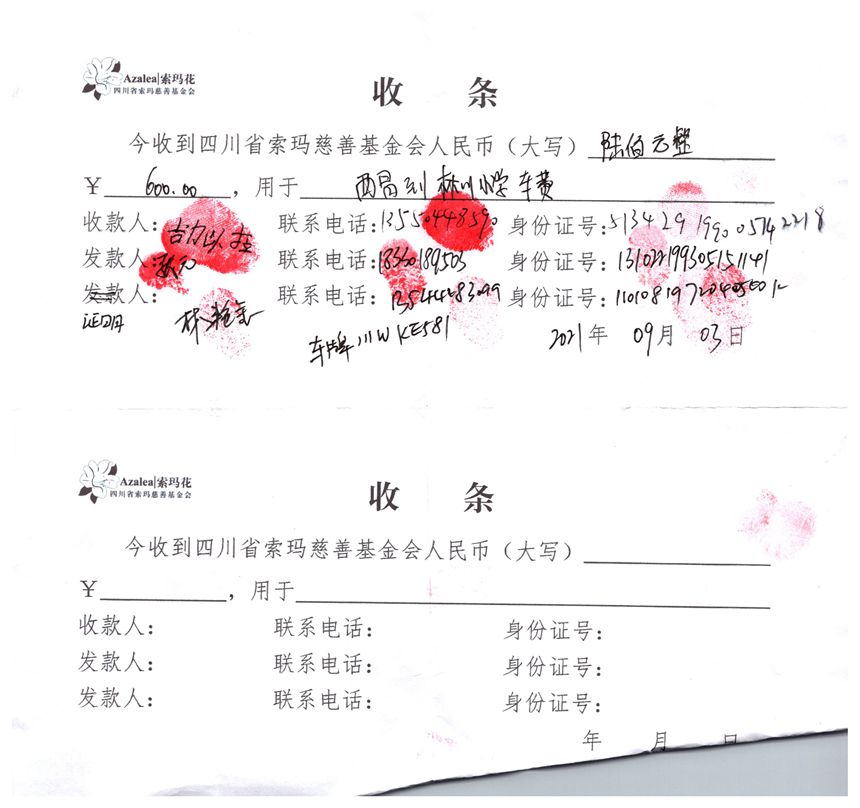 Azalea|索玛花
四川省索玛慈善基金会
收 条
今收到四川省索玛慈善基金会人民币（大写）陆佰元整
￥ 600.00 ，用于 西昌到 林川小学 车费
收款人： 联系电话：13550448590 身份证号：513429199005742218
发款人： 联系电话：18360189503 身份证号：131022199305151141
发款人： 联系电话：
证明 林 车牌川W KE581 2021年 09月 03日
Azalea|索玛花
四川省索玛慈善基金会
收 条
今收到四川省索玛慈善基金会人民币（大写）
￥ ，用于
收款人： 联系电话： 身份证号：
发款人： 联系电话： 身份证号：
发款人： 联系电话： 身份证号：
年 月 日